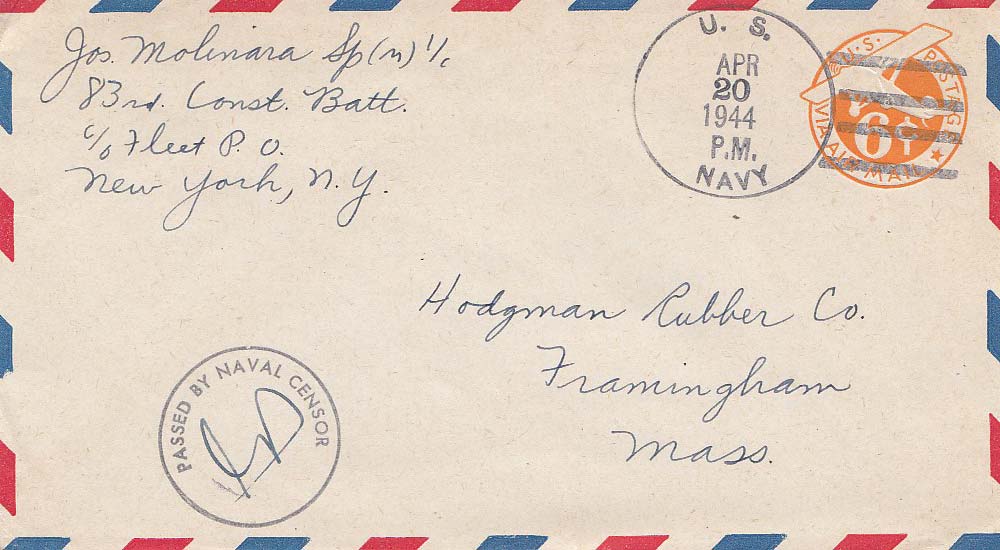 Jos. Molinara Sp(M) 1/c
83rd. Const. Batt.
c/o Fleet P. O.
New York, N. Y.
U. S.
APR
20
1944
P.M.
NAVY
U.S. POSTAGE
6¢
VIA AIR MAIL
Hodgman Rubber Co.
Framingham
Mass.
PASSED BY NAVAL CENSOR